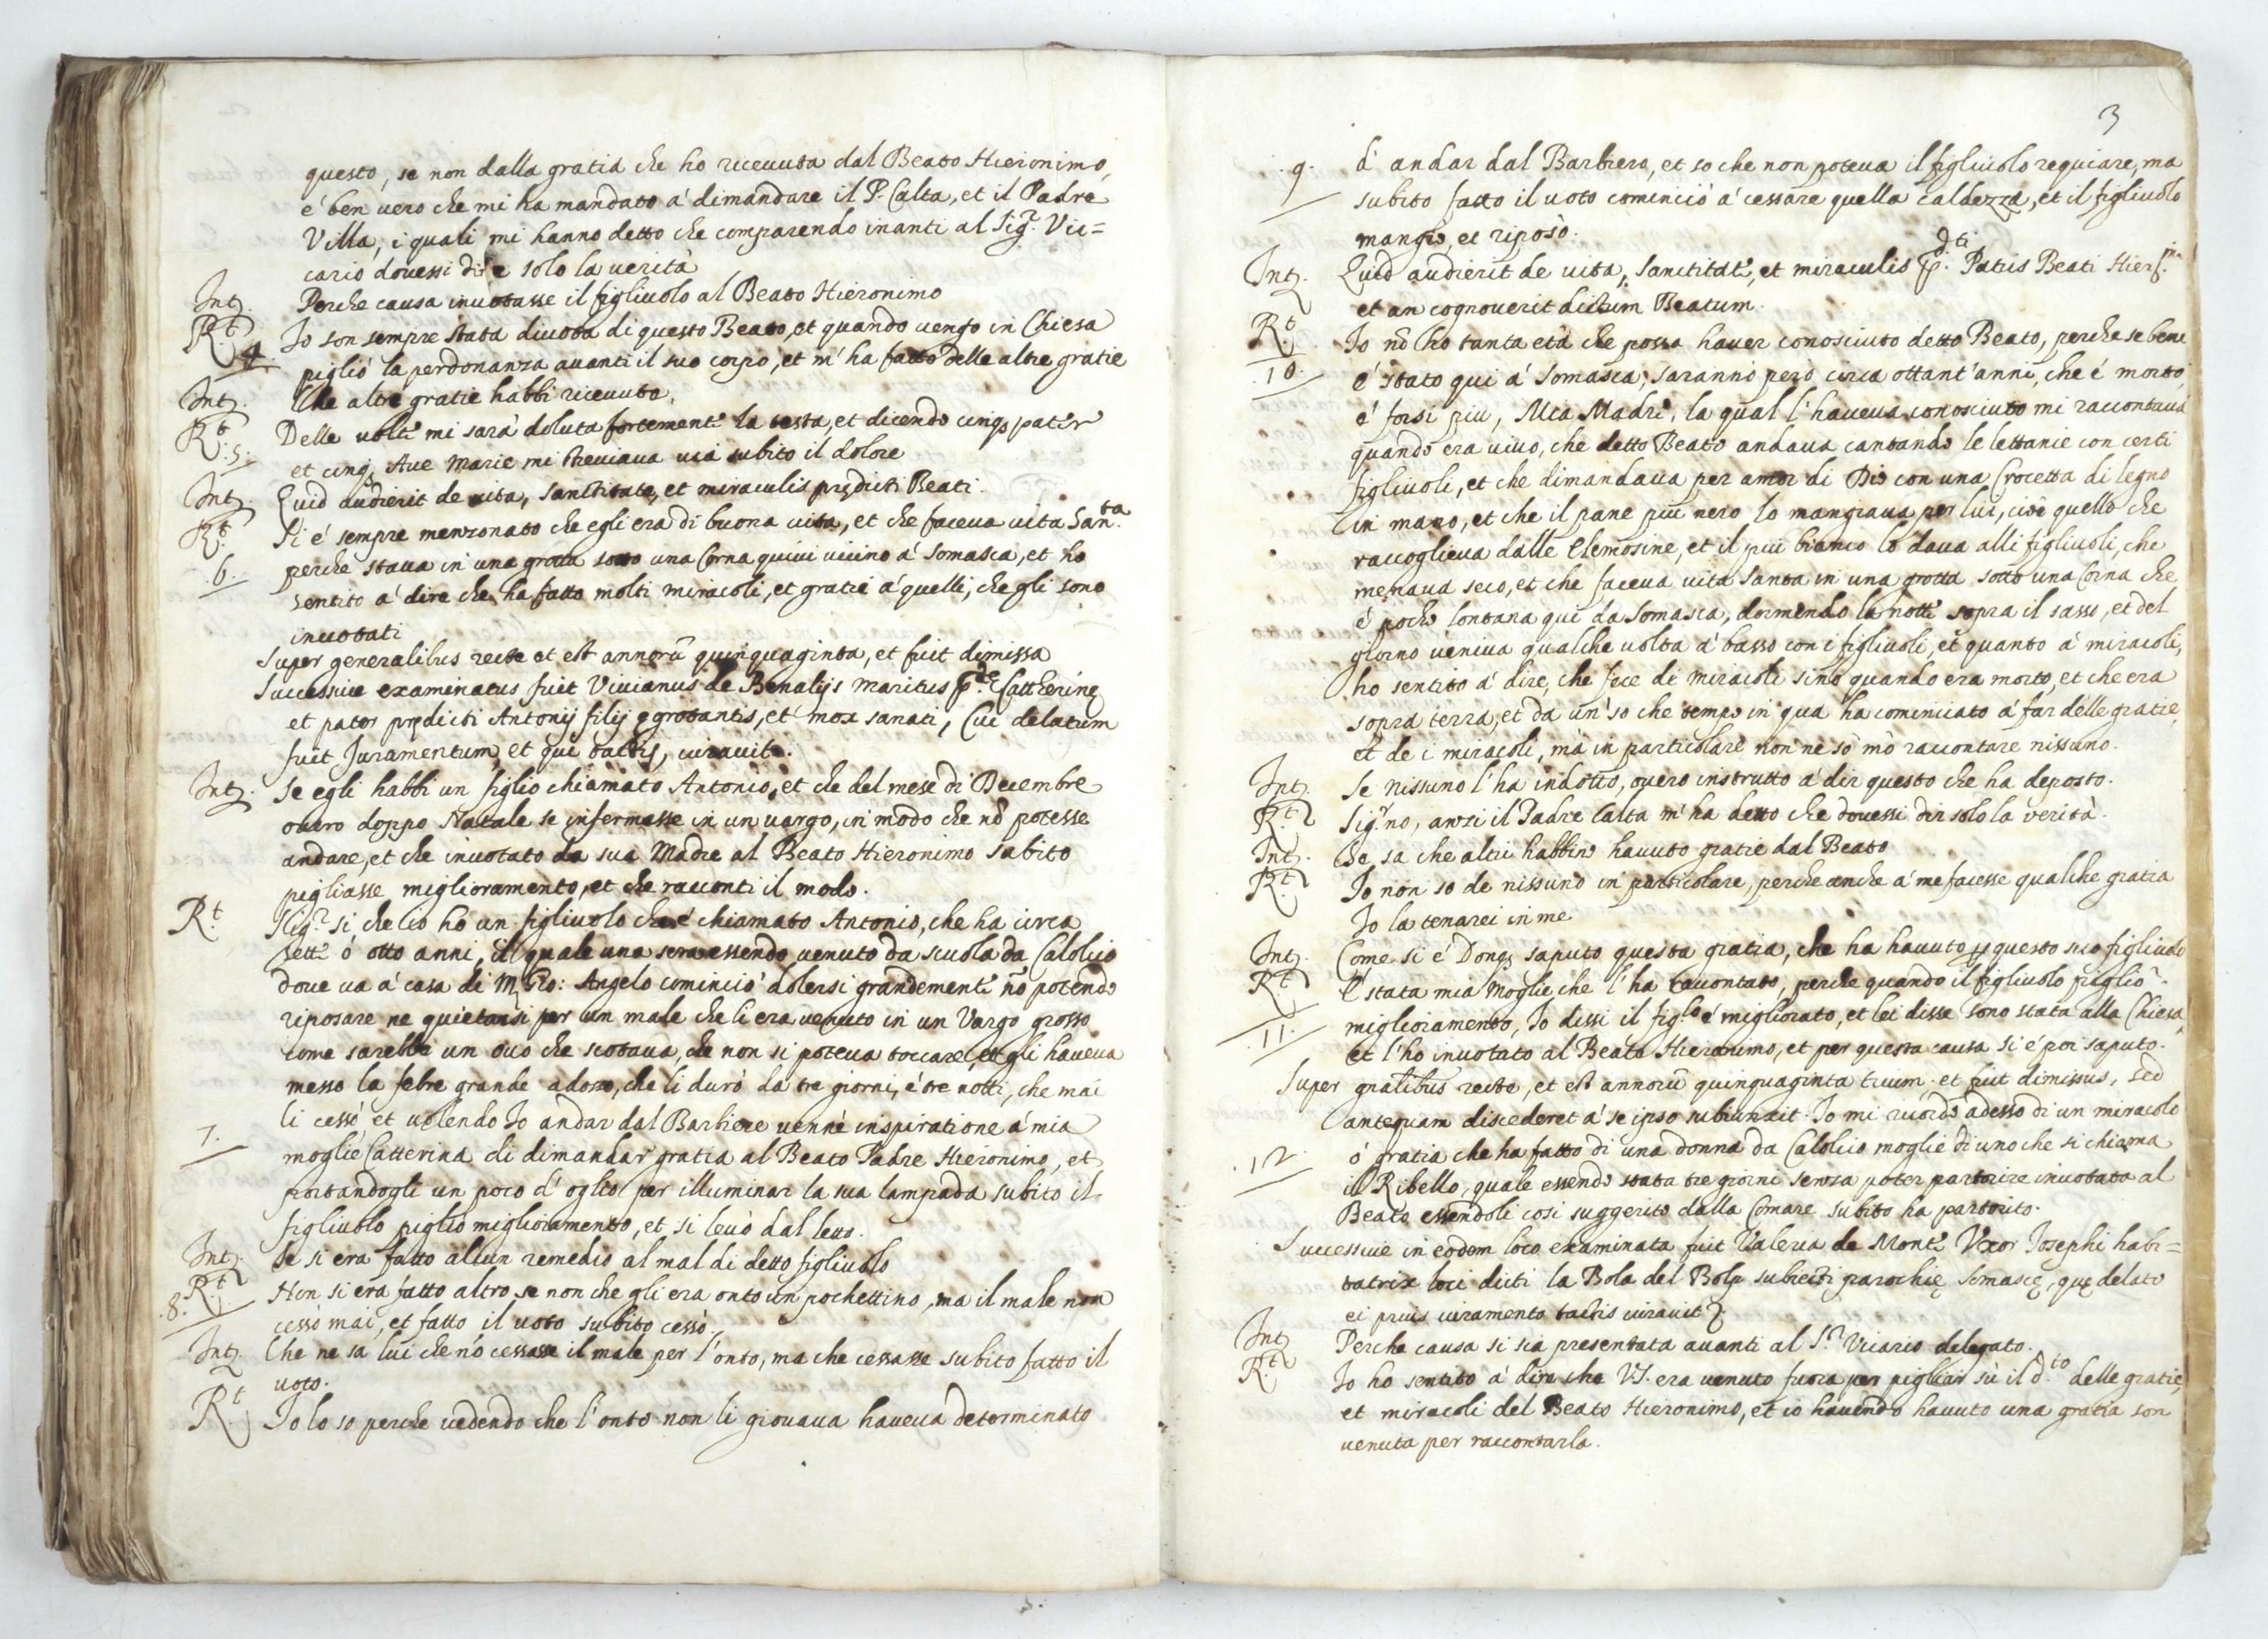 questo, se non dalla gratia che ho riceuuta dal Beato Hieronimo,
e' ben uero che mi ha mandato a' dimandare il P. Calta, et il Padre
Villa, i quali mi hanno detto che comparendo inanti al Sig.r Vic=
cario douessi dire solo la uerità
Int. Perche causa inuotasse il figliuolo al Beato Hieronimo
R.t Io son sempre stata diuota di questo Beato, et quando uengo in Chiesa
4. piglio la perdonanza auanti il suo corpo, et m' ha fatto delle altre gratie
Int. Che altre gratie habbi riceuuto.
R.t Delle uolte mi sarà doluta fortemente la testa, et dicendo cinq; pater
.5. et cinq; Aue Marie mi si leuaua uia subito il dolore
Int. Quid audierit de uita, sanctitate, et miraculis prędicti Beati.
R.t Si e' sempre menzonato che egli era di buona uita, et che faceua uita San.ta
.6. perche staua in una grotta sotto una Corna quiui uicino a' Somasca, et ho
sentito a' dire che ha fatto molti miracoli, et gratie a' quelli, che gli sono
inuotati
Super generalibus recte et est annorū quinquaginta, et fuit dimissa
Successiue examinatus fuit Viuianus de Benalijs maritus p.dę Catherinę
et pater prędicti Antonij filij ęgrotantis, et mox sanati, Cui delatum
fuit Juramentum, et qui tactis, iurauit.
Int. Se egli habbi un figlio chiamato Antonio, et che del mese di Decembre
ouero doppo Natale se infermasse in un uargo, in modo che nō potesse
andare, et che inuotato da sua Madre al Beato Hieronimo subito
pigliasse miglioramento, et che racconti il modo.
R.t Sig.r si, che io ho un figliuolo che e' chiamato Antonio, che ha circa
sette ò otto anni, il quale una sera essendo uenuto da scuola da Calolcio
doue ua a' casa di M. Gio: Angelo cominciò a dolersi grandemente nō potendo
riposare ne quietarsi per un male che li era uenuto in un Vargo grosso
come sarebbe un ouo che scotaua, che non si poteua toccare, et gli haueua
messo la febre grande adosso, che li durò da tre giorni, e' tre notti, che mai
li cessò et uolendo Io andar dal Barbiere uenne inspiratione a' mia
7. moglie Catterina di dimandar gratia al Beato Padre Hieronimo, et
portandogli un poco d' oglio per illuminar la sua lampada subito il
figliuolo pigliò miglioramento, et si leuò dal letto.
Int. Se si era fatto alcun remedio al mal di detto figliuolo
R.t Non si era fatto altro se non che gli era onto un pochettino, ma il male non
.8. cessò mai, et fatto il uoto subito cessò.
Int. Che ne sà lui che nō cessasse il male per l' onto, ma che cessasse subito fatto il
uoto.
R.t Io lo so perche uedendo che l' onto non li giouaua haueua determinato
3
.9. d' andar dal Barbiero, et so che non poteua il figliuolo requiare, ma
subito fatto il uoto cominciò a' cessare quella caldezza, et il figliuolo
mangiò, et riposò.
Int. Quid audierit de uita, sanctitate, et miraculis p.dti Patris Beati Hier.mi
et an cognouerit dictum Beatum.
R.t Io nō ho tanta età che possa hauer conosciuto detto Beato, perche se bene
.10. e' stato qui a' Somasca; saranno però circa ottant' anni, che e' morto,
e' forsi piu, Mia Madre, la qual l' haueua conosciuto mi raccontaua
quando era uiuo, che detto Beato andaua cantando le lettanie con certi
figliuoli, et che dimandaua per amor di Dio con una Crocetta di legno
in mano, et che il pane piu nero lo mangiaua per lui, cioè quello che
raccoglieua dalle Elemosine, et il piu bianco lo daua alli figliuoli, che
menaua seco, et che faceua uita santa in una grotta sotto una Corna che
e' pocho lontana qui da Somasca, dormendo la notte sopra il sasso, et del
giorno ueniua qualche uolta a' basso con i figliuoli, et quanto a' miracoli,
ho sentito a' dire, che fece di miracoli sino quando era morto, et che era
sopra terra, et da un' so che tempo in qua ha cominciato a' far delle gratie,
et de i miracoli, mà in particolare non ne sò mò raccontare nissuno.
Int. Se nissuno l' ha indotto, ouero instrutto a' dir questo che ha deposto.
R.t Sig.r no, anzi il Padre Calta m' ha detto che douessi dir solo la verità.
Int. Se sa che altri habbino hauuto gratie dal Beato
R.t Io non so de nissuno in particolare, perche anche a' me facesse qualche gratia
Io la tenarei in me
Int. Come si e' Donq; saputo questa gratia, che ha hauuto p questo suo figliuolo
R.t E' stata mia moglie che l' ha raccontato, perche quando il figliuolo pigliò
.11. miglioramento, Io dissi il fig.lo e' migliorato, et lei disse sono stata alla Chiesa,
et l' ho inuotato al Beato Hieronimo, et per questa causa si e' poi saputo.
Super gnalibus recte, et est annorū quinquaginta trium. et fuit dimissus, sed
antequam discederet a' se ipso subiunxit. Io mi ricordo adesso di un miracolo
.12. ò gratia che ha fatto di una donna da Calolcio moglie di uno che si chiama
il Ribello, quale essendo stata tre giorni senza poter partorire inuotata al
Beato essendoli cosi suggerito dalla Comare subito ha partorito.
Successiue in eodem loco examinata fuit Valeria de Monte Vxor Josephi habi=
tatrix loci dicti la Bola del Bolg subiecti parochię Somascę, quę delato
ei prius iuramento tactis iurauit.
Int. Perche causa si sia presentata auanti al S.r Vicario delegato.
R.t Io ho sentito a' dire che V.S. era uenuto fuora per pigliar sù il d.to delle gratie,
et miracoli del Beato Hieronimo, et io hauendo hauuto una gratia son
uenuta per raccontarla.